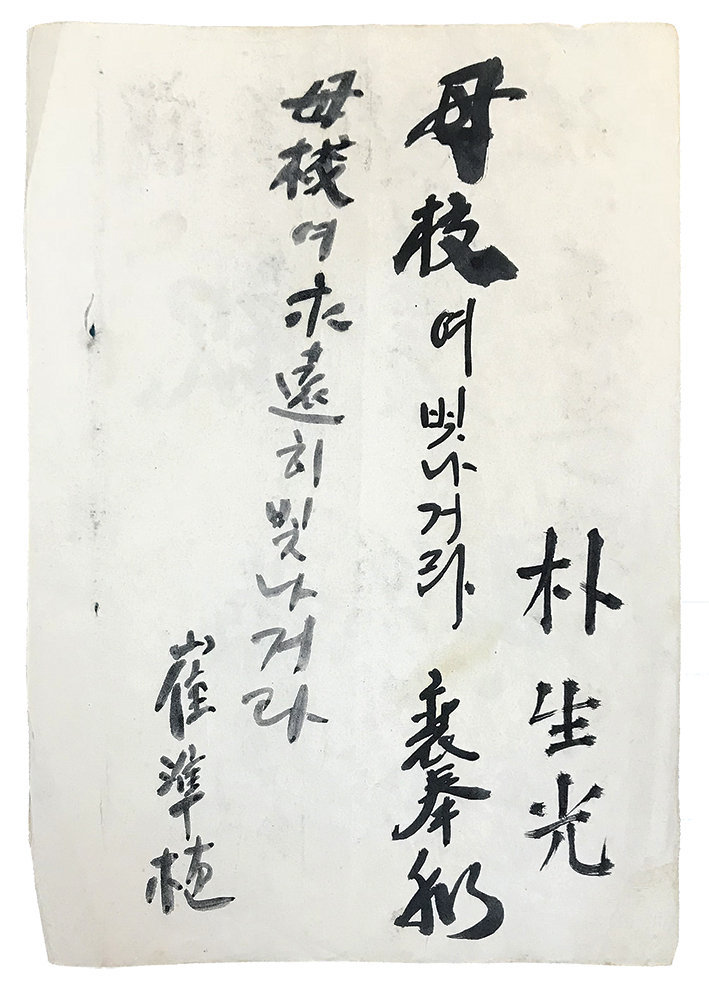 朴生光
母校여 빛나거라 裵奉
母校여 永遠히 빛나거라
崔準植